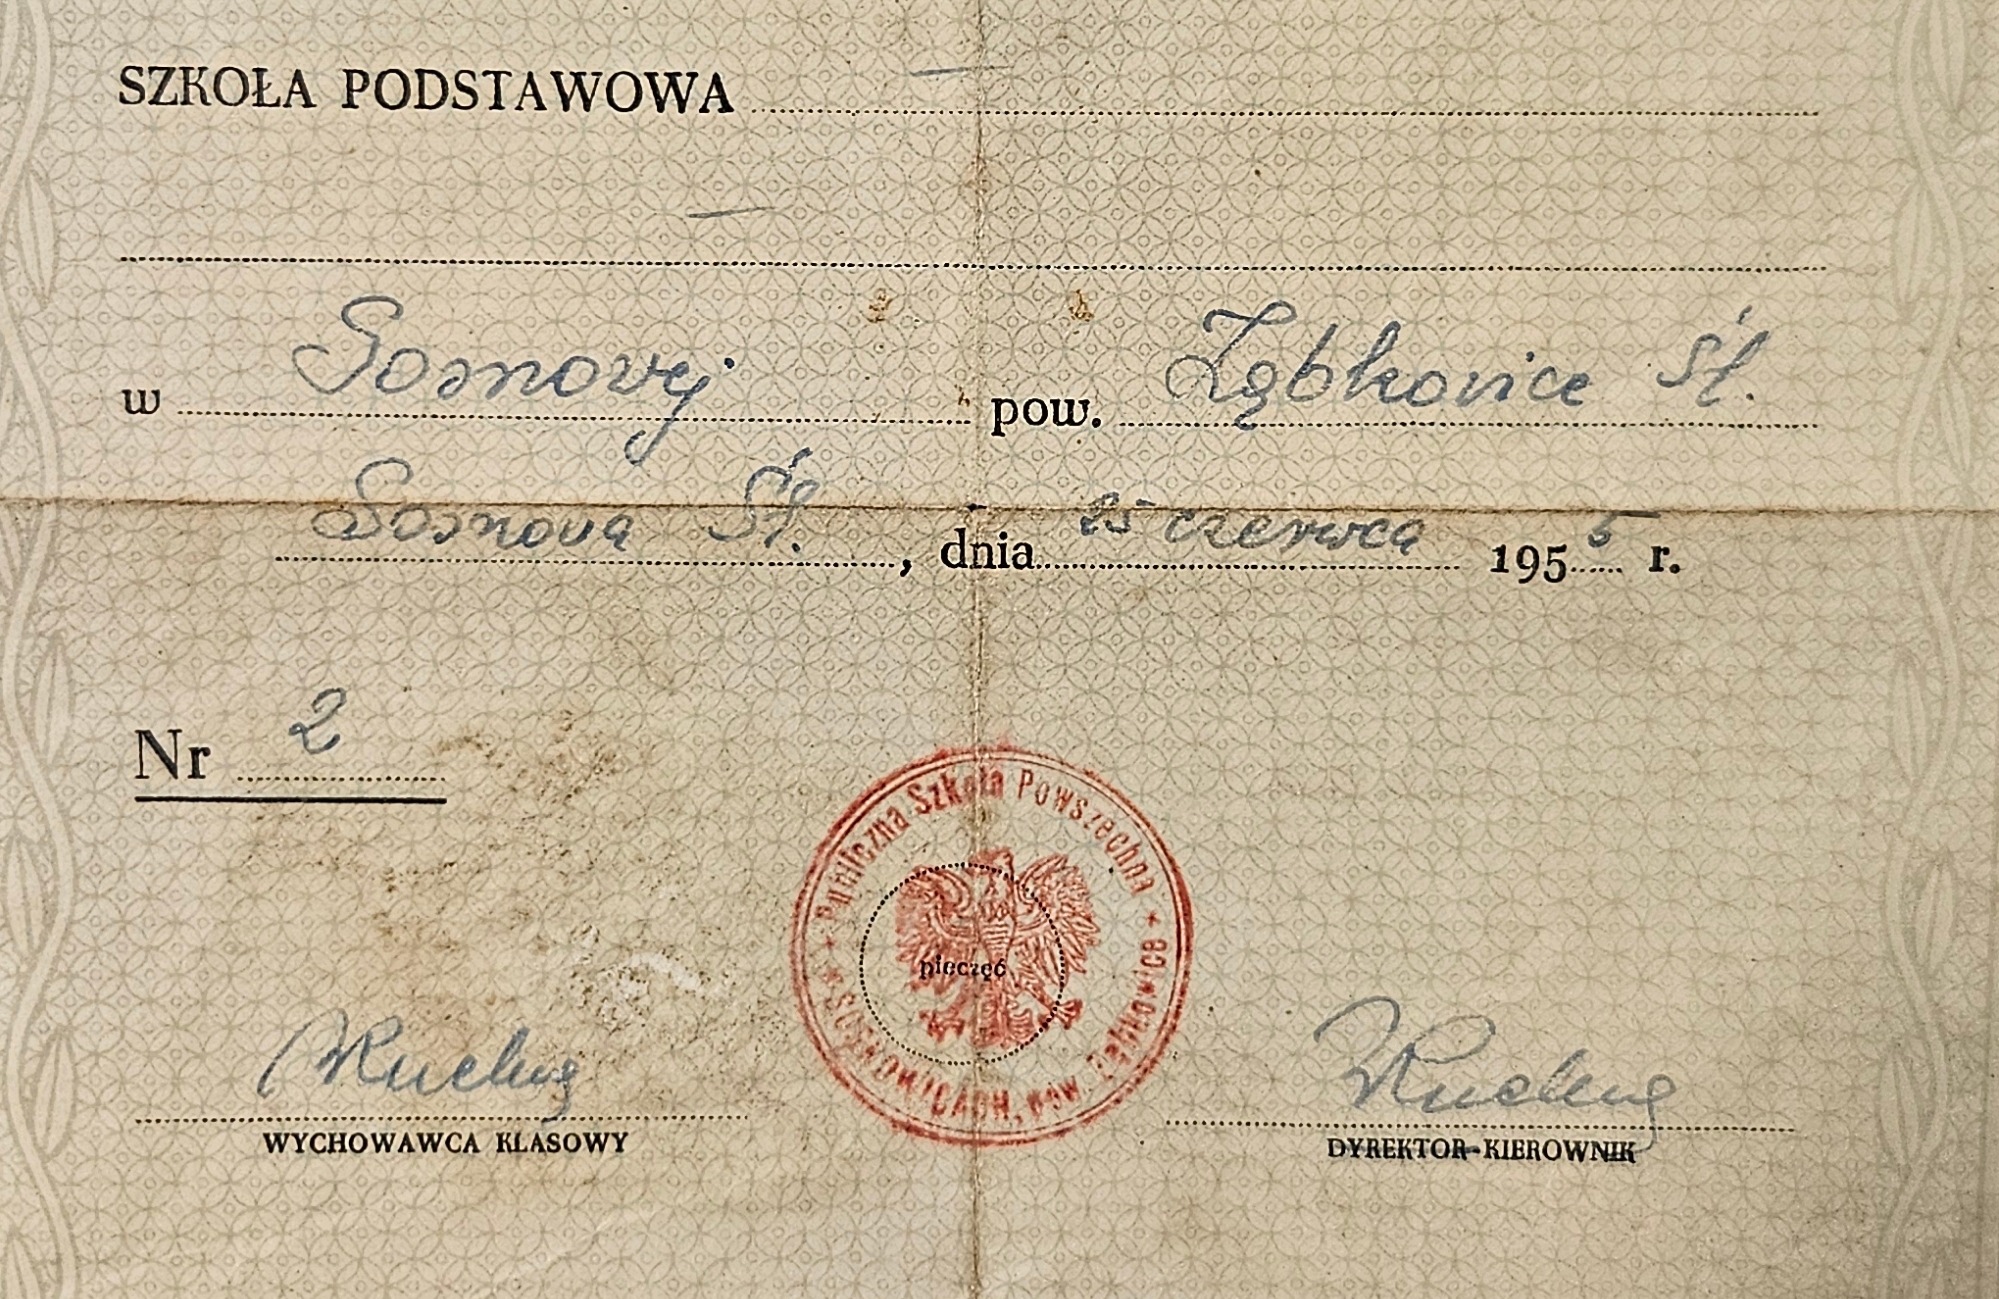 SZKOŁA PODSTAWOWA —
—
w Sosnovej pow. Ząbkovice Śl.
Sosnova Śl. , dnia 25 czerwca 1955 r.
Nr 2
Publiczna Szkoła Powszechna
pow. Ząbkowice
pieczęć
WYCHOWAWCA KLASOWY DYREKTOR-KIEROWNIK